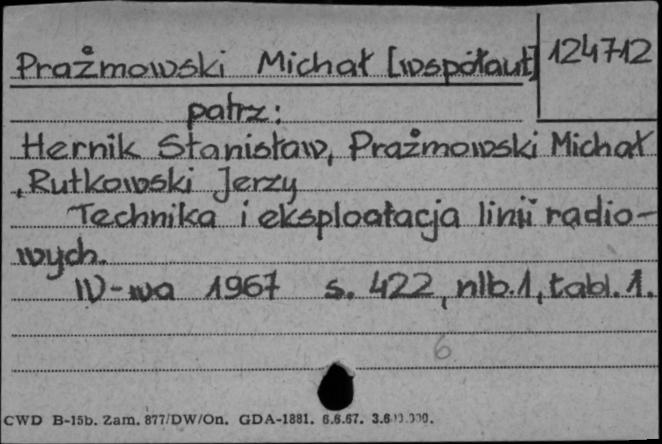 Prażmowski Michał [współaut] 124712
patrz:
Hernik Stanisław, Prażmowski Michał
, Rutkowski Jerzy
Technika i eksploatacja linii radio-
wych.
W-wa 1967 s. 422, nlb. 1, tabl. 1.
6
CWD B-15b. Zam. 877/DW/On. GDA-1881. 6.6.67.